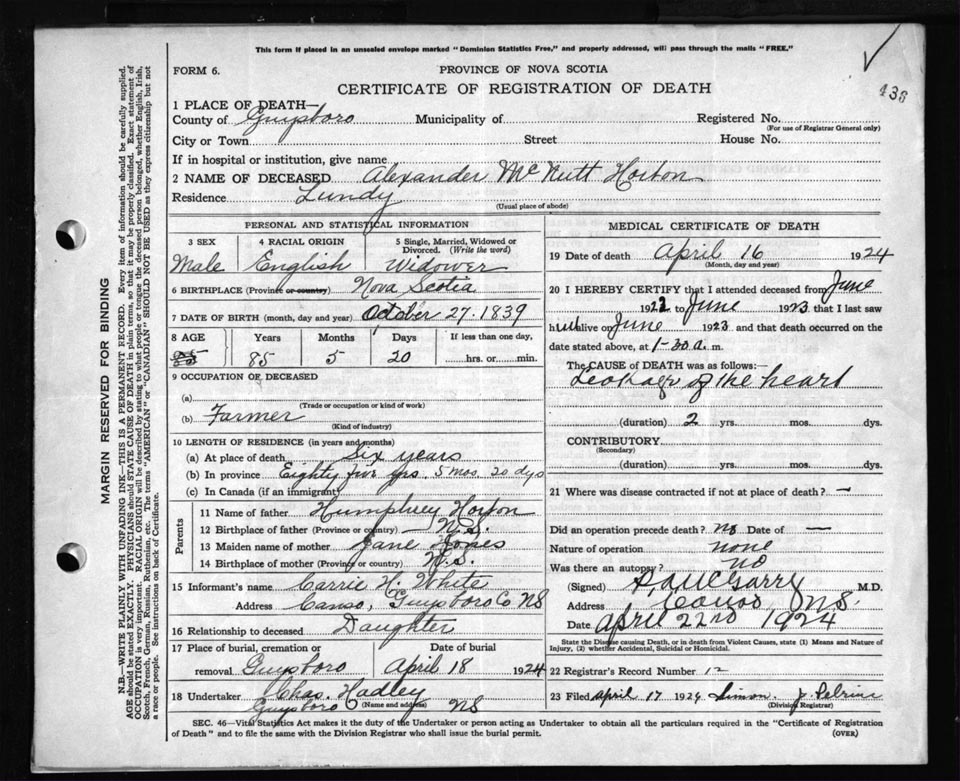 This form if placed in an unsealed envelope marked "Dominion Statistics Free," and properly addressed, will pass through the mails "FREE."
FORM 6.
PROVINCE OF NOVA SCOTIA
CERTIFICATE OF REGISTRATION OF DEATH
438
1 PLACE OF DEATH—
County of Guysboro Municipality of Registered No.
(For use of Registrar General only)
City or Town Street House No.
If in hospital or institution, give name
2 NAME OF DECEASED Alexander McNutt Horton
Residence Lundy
(Usual place of abode)
PERSONAL AND STATISTICAL INFORMATION
3 SEX 4 RACIAL ORIGIN 5 Single, Married, Widowed or Divorced. (Write the word)
Male English Widower
6 BIRTHPLACE (Province or country) Nova Scotia
7 DATE OF BIRTH (month, day and year) October 27. 1839
8 AGE Years Months Days If less than one day,
85 85 5 20 hrs. or min.
9 OCCUPATION OF DECEASED
(a)
(Trade or occupation or kind of work)
(b) Farmer
(Kind of industry)
10 LENGTH OF RESIDENCE (in years and months)
(a) At place of death Six years
(b) In province Eighty five yrs. 5 mos. 20 dys
(c) In Canada (if an immigrant)
Parents
11 Name of father Humphrey Horton
12 Birthplace of father (Province or country) — N.S.
13 Maiden name of mother Jane Jones
14 Birthplace of mother (Province or country) N.S.
15 Informant's name Carrie H. White
Address Canso, Guysboro Co NS
16 Relationship to deceased Daughter
17 Place of burial, cremation or removal Guysboro
Date of burial April 18 1924
18 Undertaker Chas. Hadley
Guysboro (Name and address) NS
MEDICAL CERTIFICATE OF DEATH
19 Date of death April 16 1924
(Month, day and year)
20 I HEREBY CERTIFY that I attended deceased from June
1922 to June 1923 that I last saw
him alive on June 1923 and that death occurred on the
date stated above, at 1-30 a. m.
The CAUSE OF DEATH was as follows:—
Leakage of the heart
(duration) 2 yrs. mos. dys.
CONTRIBUTORY
(Secondary)
(duration) yrs. mos. dys.
21 Where was disease contracted if not at place of death? —
Did an operation precede death? no Date of —
Nature of operation none
Was there an autopsy? no
(Signed) M.D.
Address Canso, N.S.
Date April 22nd 1924
State the Disease causing Death, or in death from Violent Causes, state (1) Means and Nature of Injury, (2) whether Accidental, Suicidal or Homicidal.
22 Registrar's Record Number 12
23 Filed April 17 1924 Simon J. Pelrine
(Division Registrar)
SEC. 46—Vital Statistics Act makes it the duty of the Undertaker or person acting as Undertaker to obtain all the particulars required in the "Certificate of Registration
of Death" and to file the same with the Division Registrar who shall issue the burial permit. (OVER)
MARGIN RESERVED FOR BINDING
N.B.—WRITE PLAINLY WITH UNFADING INK—THIS IS A PERMANENT RECORD. Every item of information should be carefully supplied.
AGE should be stated EXACTLY. PHYSICIANS should STATE CAUSE OF DEATH in plain terms, so that it may be properly classified. Exact statement of
OCCUPATION is very important. RACIAL ORIGIN will be described by stating to what people or tongue the deceased person belonged, whether English, Irish,
Scotch, French, German, Russian, Ruthenian, etc. The terms "AMERICAN" or "CANADIAN" SHOULD NOT BE USED as they express citizenship but not
a race or people. See instructions on back of Certificate.